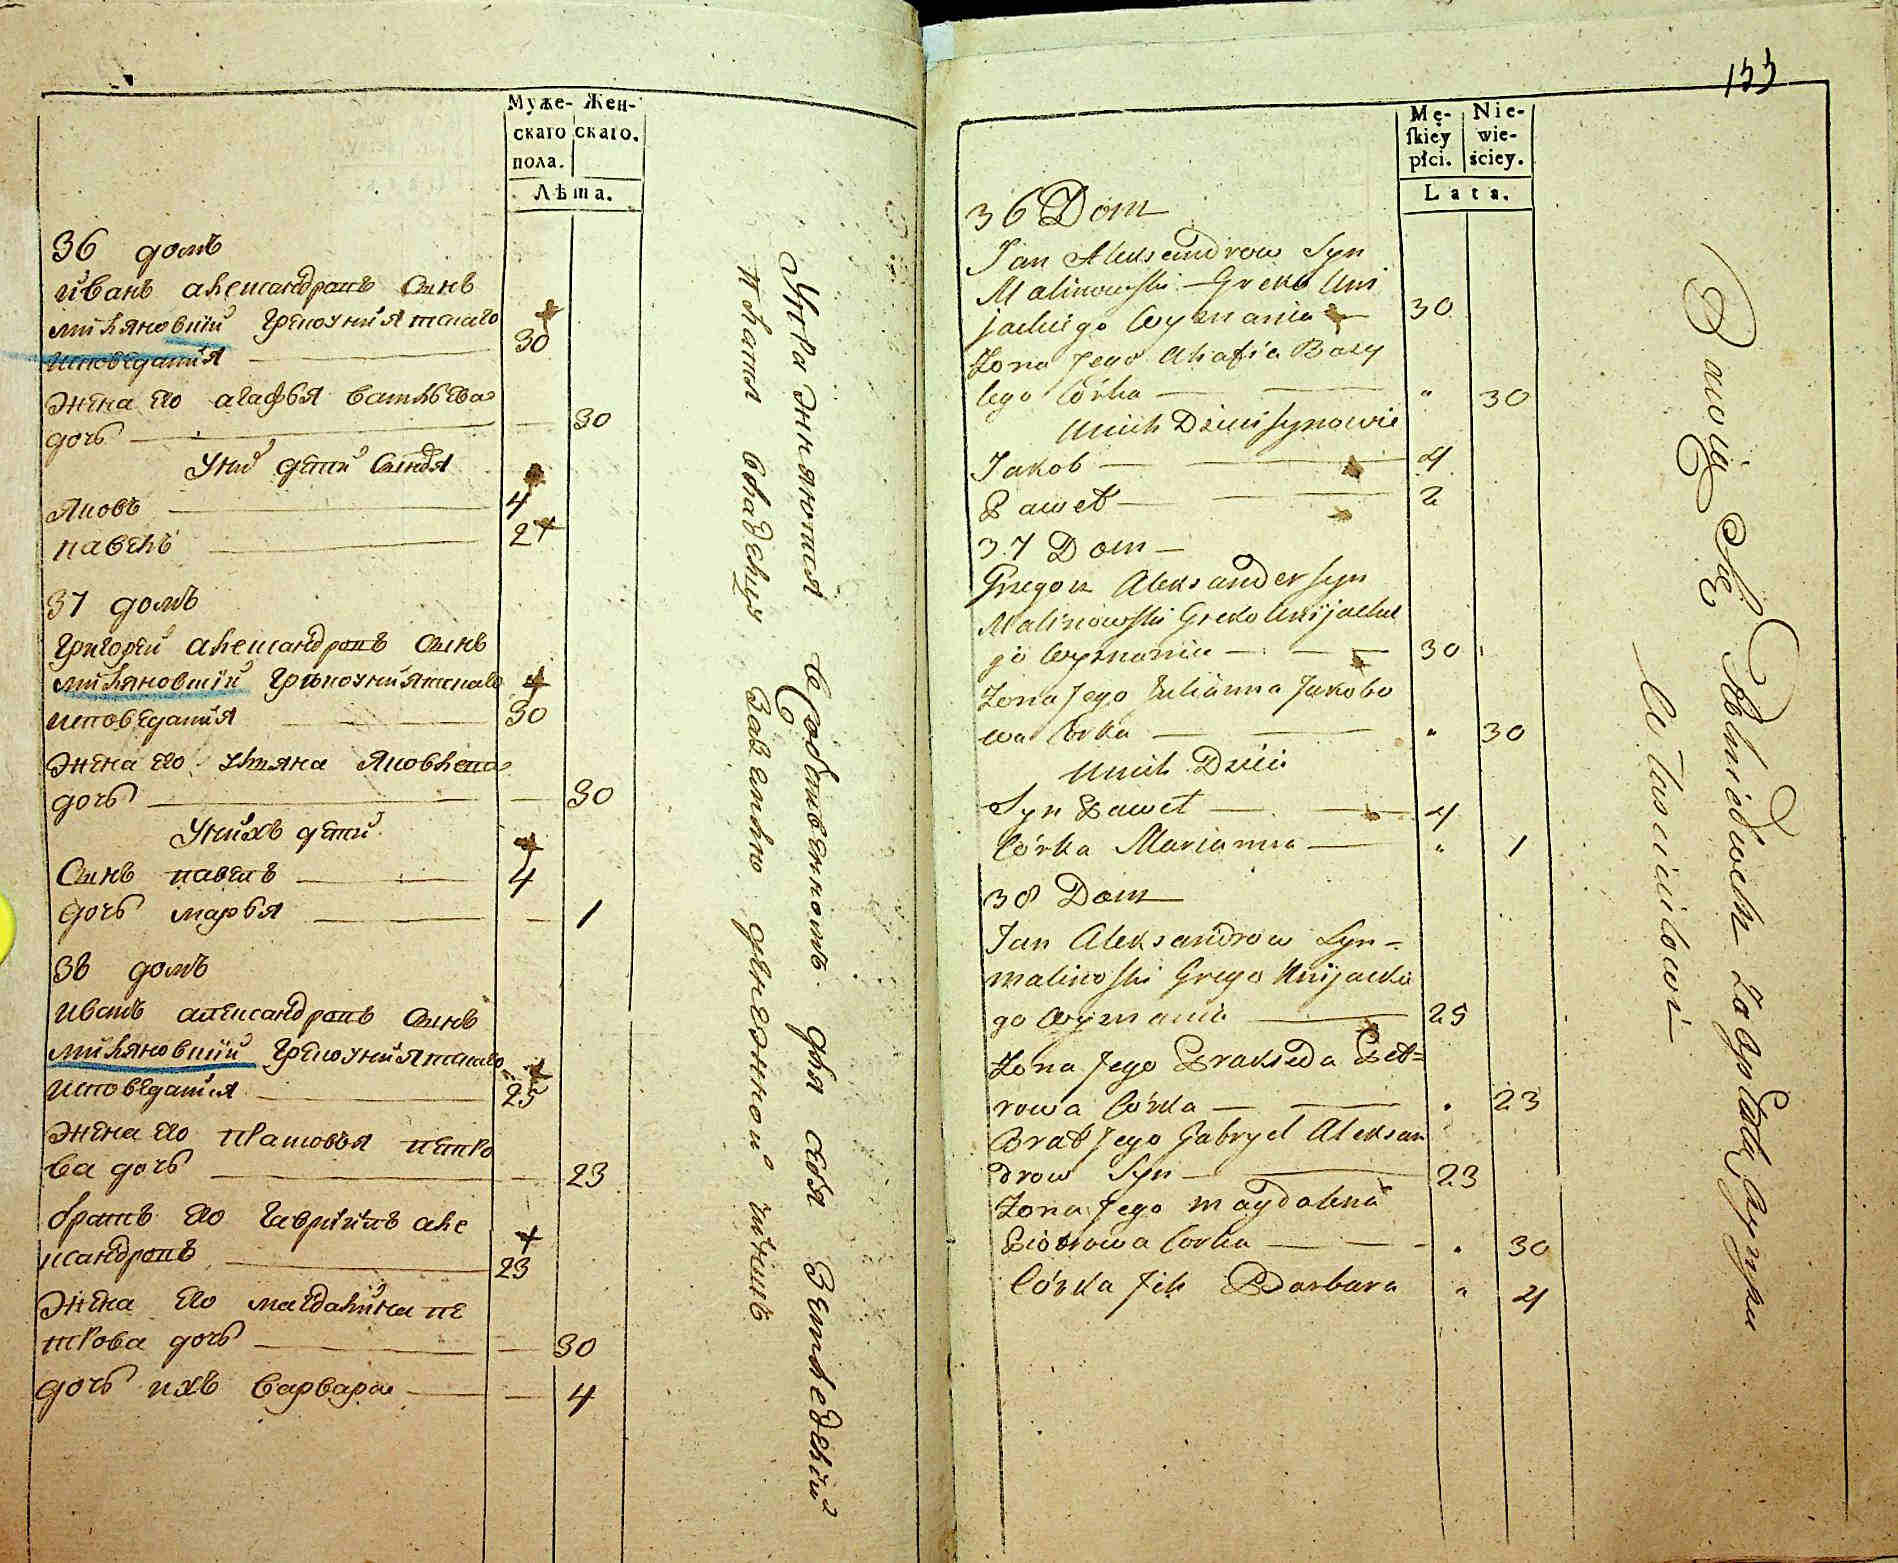 Муже- Жен-
скаго скаго.
пола.
Лѣта.
36 домъ
иванъ александровъ сынъ
малиновский грекоуниятскаго
исповедания — 30
жена его агафья васильева
дочь — 30
У них дети сыновья
Яковъ — 4
павелъ — 2
37 домъ
григорей александровъ сынъ
малиновский грекоуниятскаго
исповедания — 30
жена его ульяна яковлева
дочь — 30
У нихъ дети
Сынъ павелъ — 4
дочь марья — 1
38 домъ
иванъ александровъ сынъ
малиновский грекоуниятскаго
исповедания — 25
жена его прасковья петро
ва дочь — 23
братъ его гаврiилъ але
ксандровъ — 23
жена его магдалина пе
трова дочь — 30
дочь ихъ варвара — 4
Упражняются Собственномъ для себя Земледелии
платя владельцу денежной чиншъ
133
Mę- Nie-
skiey wie-
płci. ściey.
Lata.
36 Dom
Jan Aleksandrow Syn
Malinowski Greko Uni
jackiego Wyznania — 30
Zona Jego Ahafia Bazy
lego Córka — " 30
Unich Dzieci Synowie
Jakob — 4
Paweł — 2
37 Dom
Gregorz Aleksander syn
Malinowski Greko Unijackie
go Wyznania — 30
Zona Jego Julianna Jakobo
wa Corka — " 30
Unich Dzieci
Syn Paweł — 4
Córka Marianna — " 1
38 Dom
Jan Aleksandrow Syn
malinoski Grego Unijackie
go Wyznania — 25
Zona Jego Prakseda Piet=
rowa Córka — " 23
Brat Jego Gabryel Aleksan
drow Syn — 23
Zona Jego magdalena
Piotrowa Corka — " 30
Córka Jich Barbara " 4
Bawią Się Rolnictwem Zapłatą Czynszu
Właścicielowi